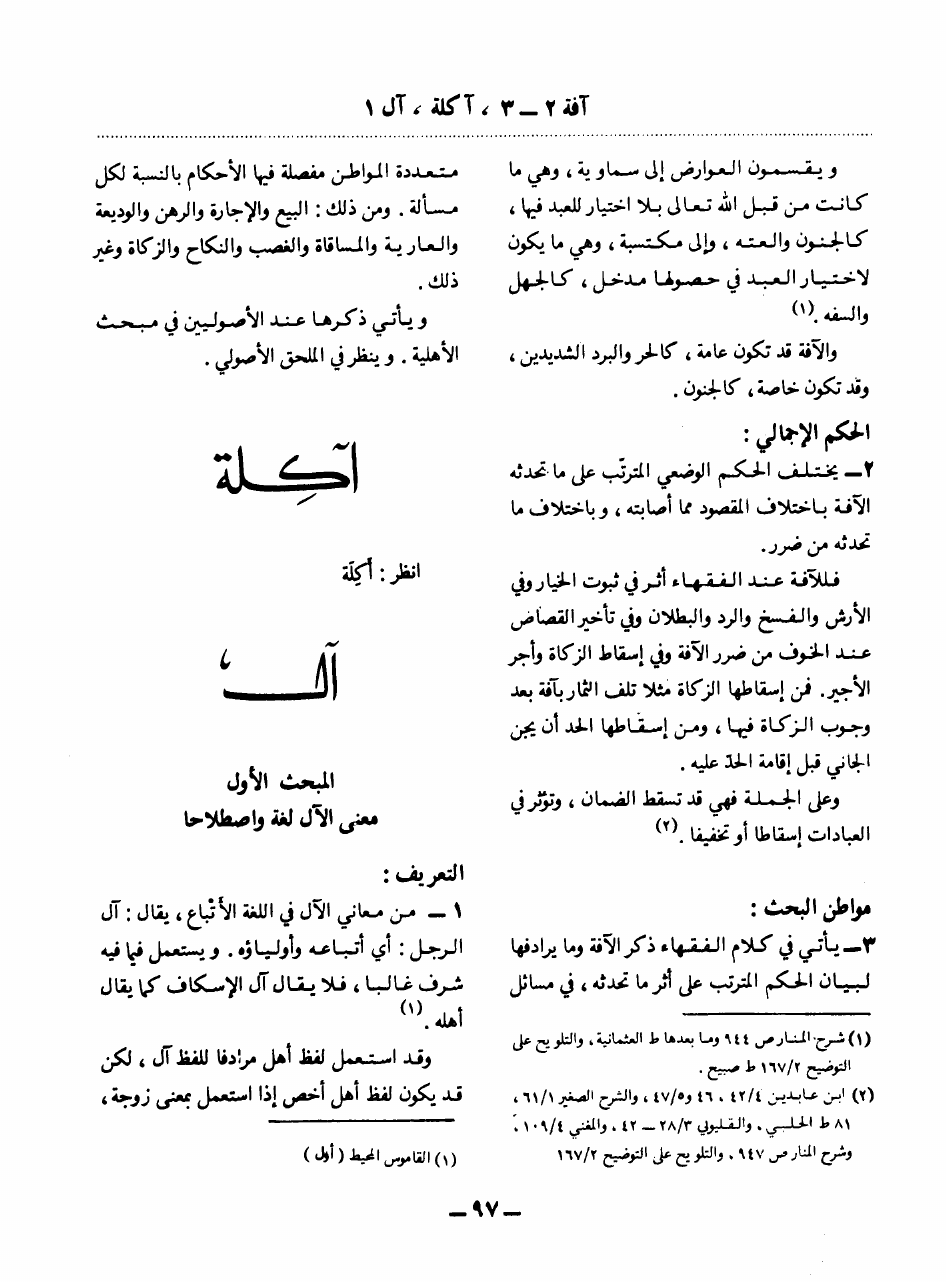 آفة ٢ – ٣ ، آكلة ، آل ١
ويقسمون العوارض إلى سماوية ، وهي ما
كانت من قبل الله تعالى بلا اختيار للعبد فيها ،
كالجنون والعته ، وإلى مكتسبة ، وهي ما يكون
لاختيار العبد في حصولها مدخل ، كالجهل
والسفه . (١)
والآفة قد تكون عامة ، كالحر والبرد الشديدين ،
وقد تكون خاصة ، كالجنون .
الحكم الإجمالي :
٢ – يختلف الحكم الوضعي المترتّب على ما تحدثه
الآفة باختلاف المقصود مما أصابته ، وباختلاف ما
تحدثه من ضرر .
فللآفة عند الفقهاء أثر في ثبوت الخيار وفي
الأرش والفسخ والرد والبطلان وفي تأخير القصاص
عند الخوف من ضرر الآفة وفي إسقاط الزكاة وأجر
الأجير . فمن إسقاطها الزكاة مثلا تلف الثمار بآفة بعد
وجوب الزكاة فيها ، ومن إسقاطها الحد أن يجن
الجاني قبل إقامة الحدّ عليه .
وعلى الجملة فهي قد تسقط الضمان ، وتؤثر في
العبادات إسقاطا أو تخفيفا . (٢)
مواطن البحث :
٣ – يأتي في كلام الفقهاء ذكر الآفة وما يرادفها
لبيان الحكم المترتب على أثر ما تحدثه ، في مسائل
(١) شرح المنار ص ٩٤٤ وما بعدها ط العثمانية ، والتلويح على
التوضيح ١٦٧/٢ ط صبيح .
(٢) ابن عابدين ٤٢/٤ ، ٤٦ و٤٧/٥ ، والشرح الصغير ٦١/١ ،
٨١ ط الحلبي . والقليوبي ٢٨/٣ – ٤٢ ، والمغني ١٠٩/٤ ،
وشرح المنار ص ٩٤٧ . والتلويح على التوضيح ١٦٧/٢
متعددة المواطن مفصلة فيها الأحكام بالنسبة لكل
مسألة . ومن ذلك : البيع والإجارة والرهن والوديعة
والعارية والمساقاة والغصب والنكاح والزكاة وغير
ذلك .
ويأتي ذكرها عند الأصوليين في مبحث
الأهلية . وينظر في الملحق الأصولي .
آكِلة
انظر : أَكِلَة
آل
المبحث الأول
معنى الآل لغة واصطلاحا
التعريف :
١ – من معاني الآل في اللغة الأتْباع ، يقال : آل
الرجل : أي أتباعه وأولياؤه . ويستعمل فيما فيه
شرف غالبا ، فلا يقال آل الإسكاف كما يقال
أهله . (١)
وقد استعمل لفظ أهل مرادفا للفظ آل ، لكن
قد يكون لفظ أهل أخص إذا استعمل بمعنى زوجة ،
(١) القاموس المحيط ( أول )
– ٩٧ –